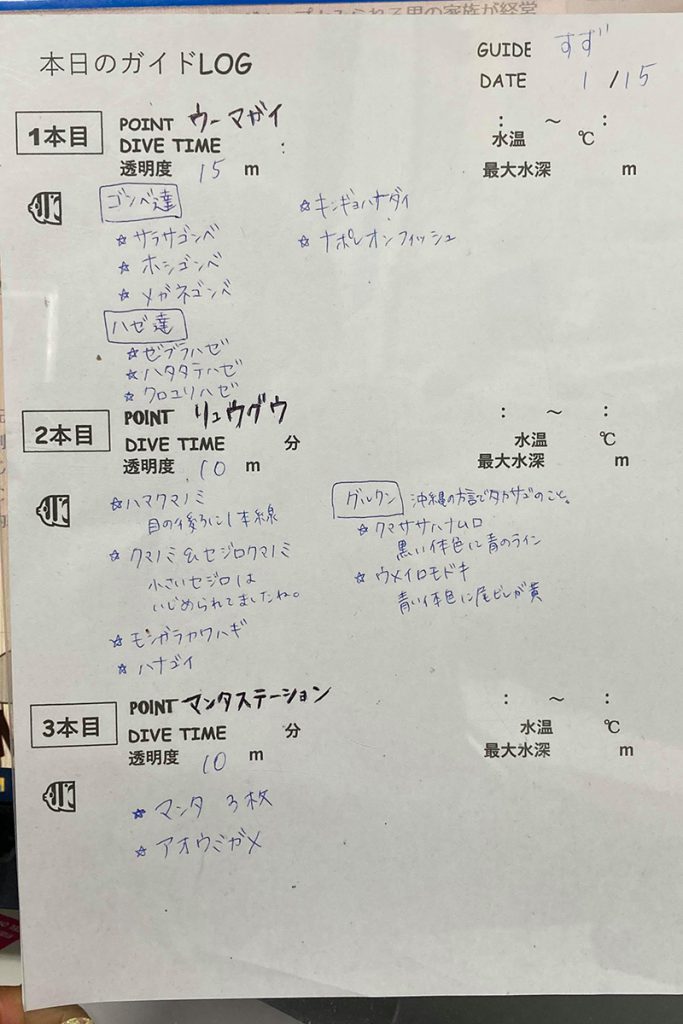 本日のガイドLOG
GUIDE すず
DATE 1 / 15
1本目
POINT ウーマガイ
DIVE TIME :
透明度 15 m
: ~ :
水温 ℃
最大水深 m
ゴンベ達
☆サラサゴンベ
☆ホシゴンベ
☆メガネゴンベ
ハゼ達
☆ゼブラハゼ
☆ハタタテハゼ
☆クロユリハゼ
☆キンギョハナダイ
☆ナポレオンフィッシュ
2本目
POINT リュウグウ
DIVE TIME 分
透明度 10 m
: ~ :
水温 ℃
最大水深 m
☆ハマクマノミ
目の後ろに1本線
☆クマノミ&セジロクマノミ
小さいセジロは
いじめられてましたね。
☆モンガラカワハギ
☆ハナゴイ
グルクン 沖縄の方言でタカサゴのこと。
☆クマササハナムロ
黒い体色に青のライン
☆ウメイロモドキ
青い体色に尾ビレが黄
3本目
POINT マンタステーション
DIVE TIME 分
透明度 10 m
: ~ :
水温 ℃
最大水深 m
☆マンタ 3枚
☆アオウミガメ